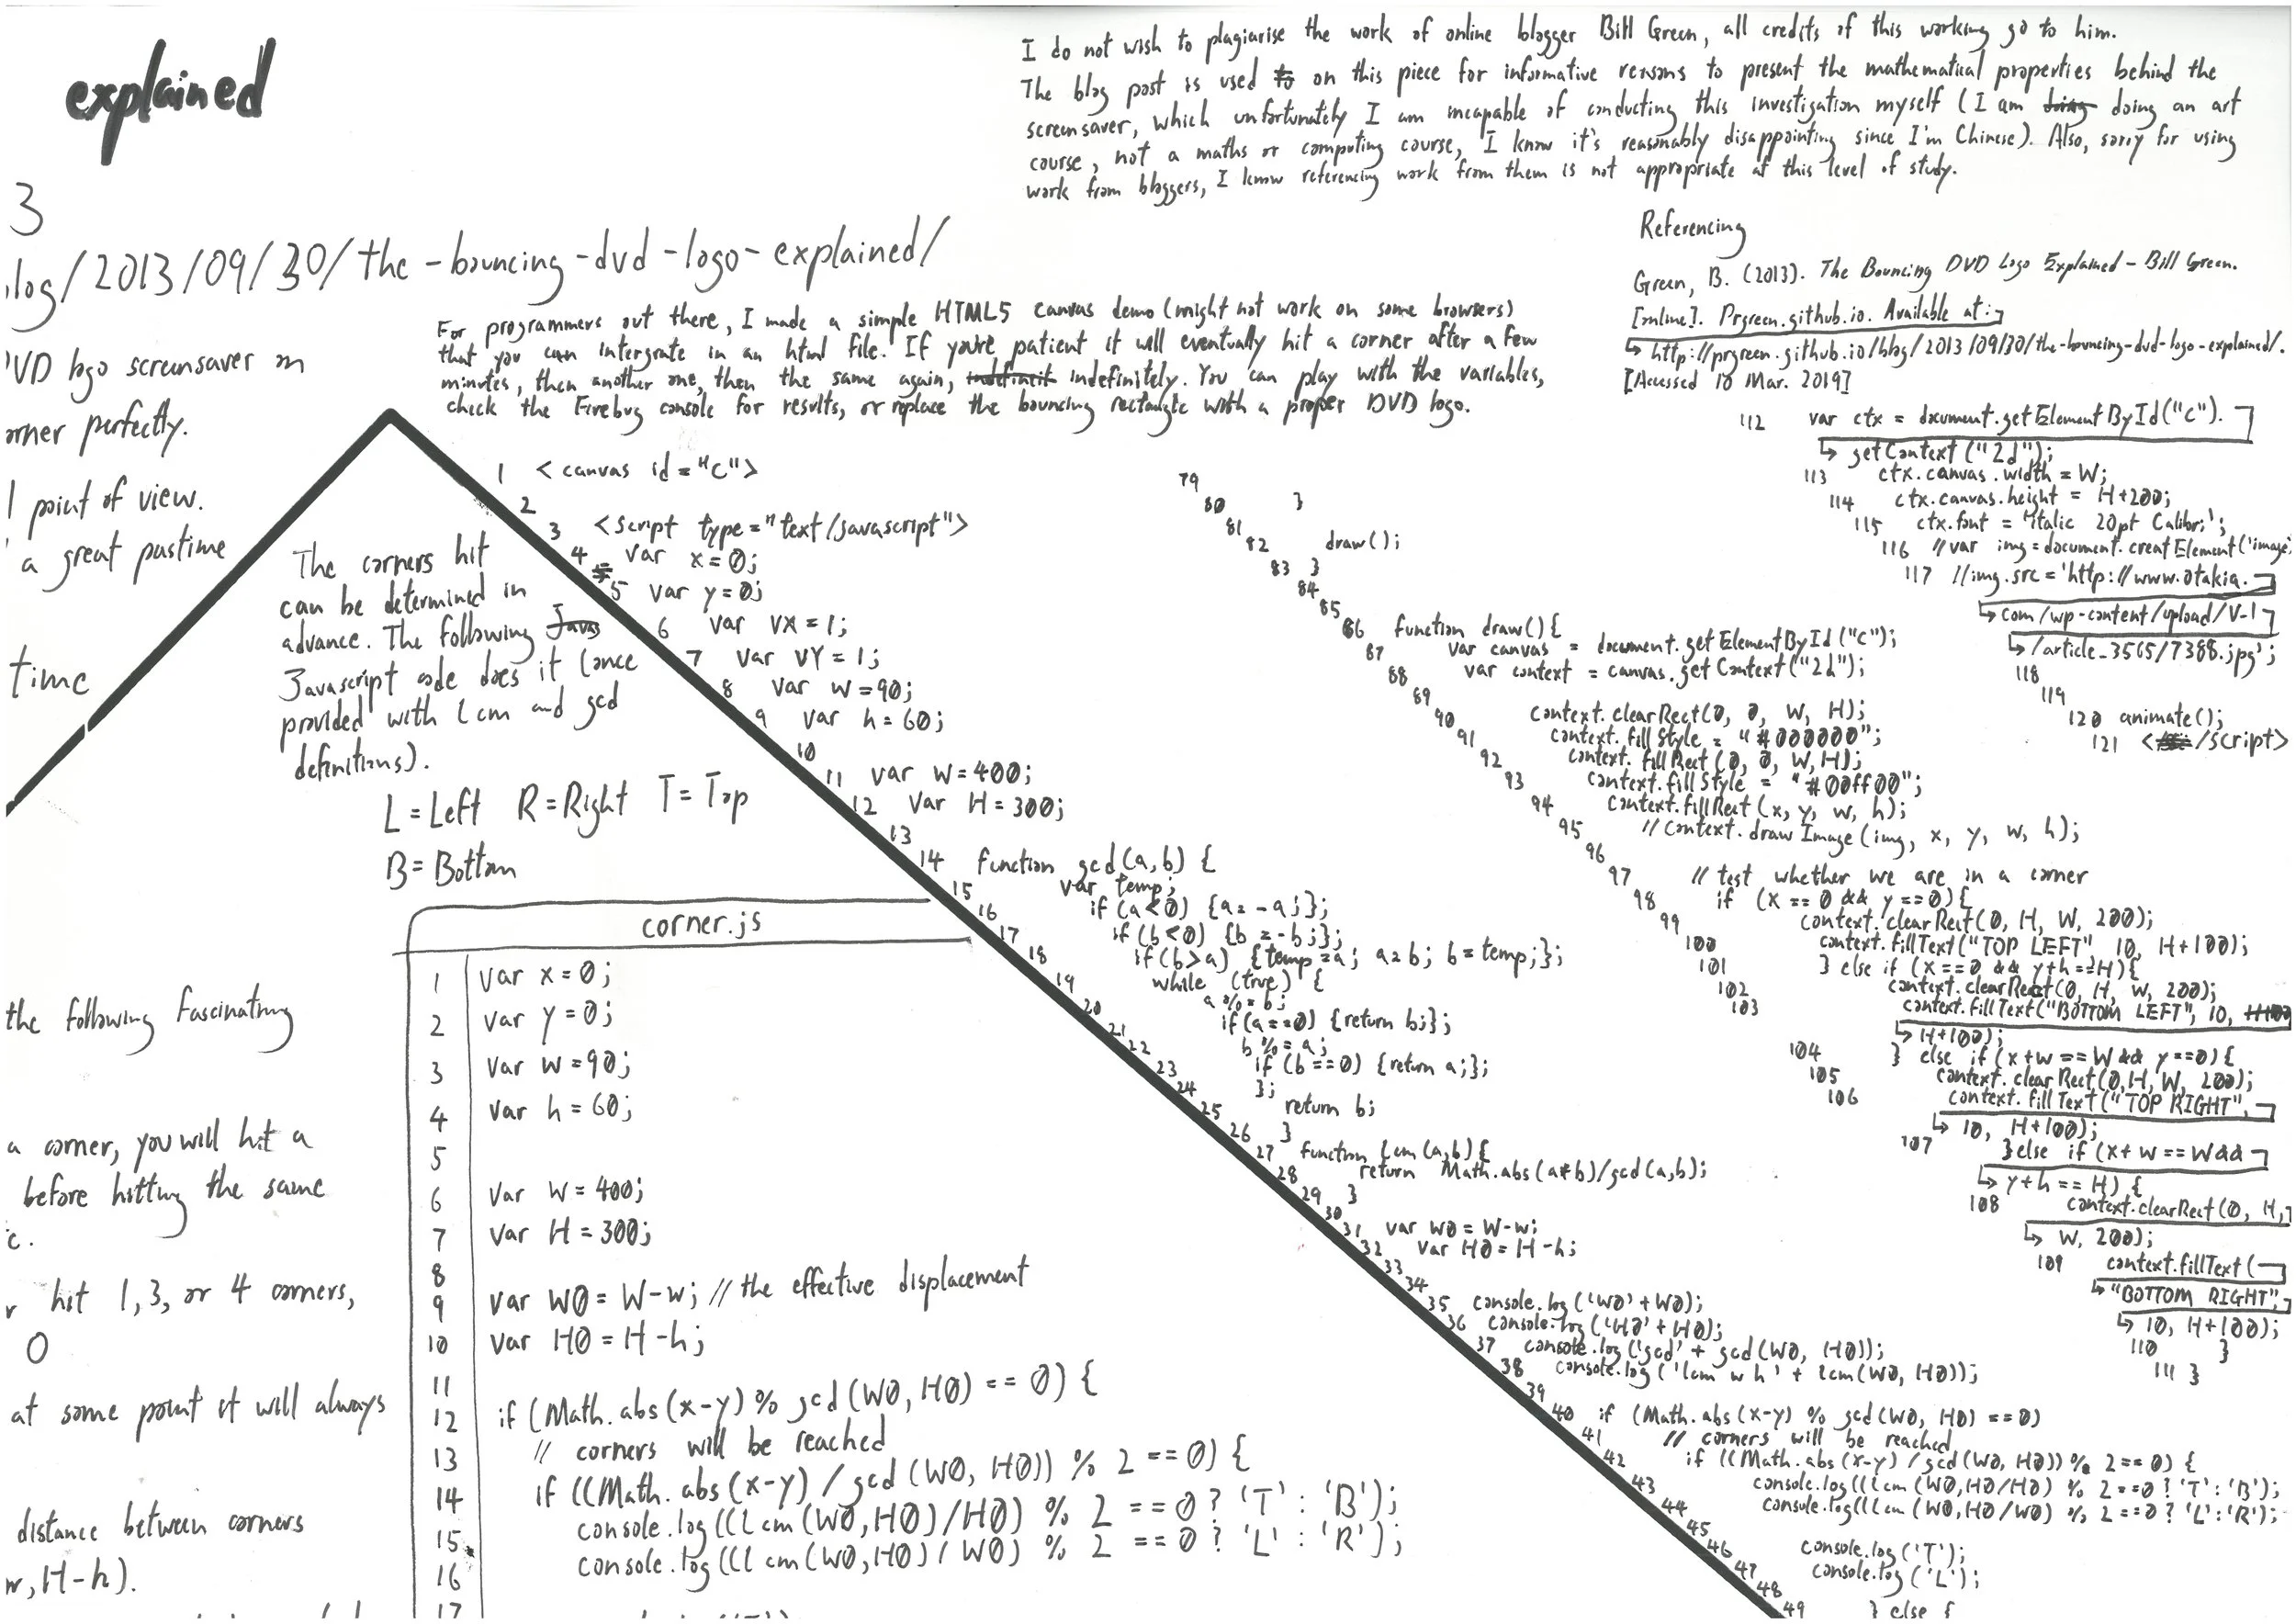 explained
I do not wish to plagiarise the work of online blogger Bill Green, all credits of this working go to him.
The blog post is used to on this piece for informative reasons to present the mathematical properties behind the
screensaver, which unfortunately I am incapable of conducting this investigation myself (I am doing doing an art
course, not a maths or computing course, I know it's reasonably disappointing since I'm Chinese). Also, sorry for using
work from bloggers, I know referencing work from them is not appropriate at this level of study.
3
log/2013/09/30/the-bouncing-dvd-logo-explained/
Referencing
Green, B. (2013). The Bouncing DVD Logo Explained - Bill Green.
[online]. Prgreen.github.io. Available at:
http://prgreen.github.io/blog/2013/09/30/the-bouncing-dvd-logo-explained/.
[Accessed 10 Mar. 2019]
For programmers out there, I made a simple HTML5 canvas demo (might not work on some browsers)
that you can intergrate in an html file. If you're patient it will eventually hit a corner after a few
minutes, then another one, then the same again, indefinitely. You can play with the variables,
check the Firebug console for results, or replace the bouncing rectangle with a proper DVD logo.
VD logo screensaver on
orner perfectly.
l point of view.
a great pastime
time
the following fascinating
a corner, you will hit a
before hitting the same
c.
r hit 1, 3, or 4 corners,
0
at some point it will always
distance between corners
w, H-h).
The corners hit
can be determined in
advance. The following Javas
Javascript code does it (once
provided with lcm and gcd
definitions).
L = Left R = Right T = Top
B = Bottom
corner.js
1 var x = 0;
2 var y = 0;
3 var w = 90;
4 var h = 60;
5
6 var W = 400;
7 var H = 300;
8
9 var W0 = W-w; // the effective displacement
10 var H0 = H-h;
11
12 if (Math.abs(x-y) % gcd(W0, H0) == 0) {
13 // corners will be reached
14 if ((Math.abs(x-y) / gcd(W0, H0)) % 2 == 0) {
15 console.log(((lcm(W0,H0)/H0) % 2 == 0 ? 'T' : 'B');
16 console.log(((lcm(W0,H0)/W0) % 2 == 0 ? 'L' : 'R');
17
1 <canvas id="c">
2
3 <script type="text/javascript">
4 var x=0;
5 var y=0;
6 var vX=1;
7 var vY=1;
8 var w=90;
9 var h=60;
10
11 var W=400;
12 var H=300;
13
14 function gcd(a,b) {
15 var temp;
16 if (a<0) {a=-a;};
17 if (b<0) {b=-b;};
18 if(b>a) {temp=a; a=b; b=temp;};
19 while (true) {
20 a%=b;
21 if(a==0) {return b;};
22 b%=a;
23 if (b==0) {return a;};
24 };
25 return b;
26 }
27 function lcm(a,b){
28 return Math.abs(a*b)/gcd(a,b);
29 }
30
31 var W0=W-w;
32 var H0=H-h;
33
34
35 console.log('W0'+W0);
36 console.log('H0'+H0);
37 console.log('gcd'+gcd(W0, H0));
38 console.log('lcm w h'+lcm(W0, H0));
39
40 if (Math.abs(x-y) % gcd(W0, H0) ==0)
41 // corners will be reached
42 if ((Math.abs(x-y) / gcd(W0, H0)) % 2==0) {
43 console.log((lcm(W0,H0/H0) % 2==0 ? 'T':'B');
44 console.log((lcm(W0,H0/W0) % 2==0 ? 'L':'R');
45
46 console.log('T');
47 console.log('L');
48 } else {
49
79
80 }
81
82 draw();
83 }
84
85
86 function draw(){
87 var canvas = document.getElementById("c");
88 var context = canvas.getContext("2d");
89
90 context.clearRect(0, 0, W, H);
91 context.fillStyle = "#000000";
92 context.fillRect(0, 0, W,H);
93 context.fillStyle = "#00ff00";
94 context.fillRect(x, y, w, h);
95 // context.drawImage(img, x, y, w, h);
96
97 // test whether we are in a corner
98 if (x==0 && y==0){
99 context.clearRect(0, H, W, 200);
100 context.fillText("TOP LEFT", 10, H+100);
101 } else if (x==0 && y+h==H){
102 context.clearRect(0, H, W, 200);
103 context.fillText("BOTTOM LEFT", 10,
H+100);
104 } else if (x+w==W && y==0){
105 context.clearRect(0,H,W, 200);
106 context.fillText("TOP RIGHT",
10, H+100);
107 }else if (x+w==W&&
y+h==H) {
108 context.clearRect(0, H,
W, 200);
109 context.fillText(
"BOTTOM RIGHT",
10, H+100);
110 }
111 }
112 var ctx = document.getElementById("c").
getContext("2d");
113 ctx.canvas.width = W;
114 ctx.canvas.height = H+200;
115 ctx.font = 'italic 20pt Calibri';
116 //var img=document.creatElement('image'
117 //img.src='http://www.otakia.
com/wp-content/upload/V-1
/article_3565/7388.jpg';
118
119
120 animate();
121 </script>